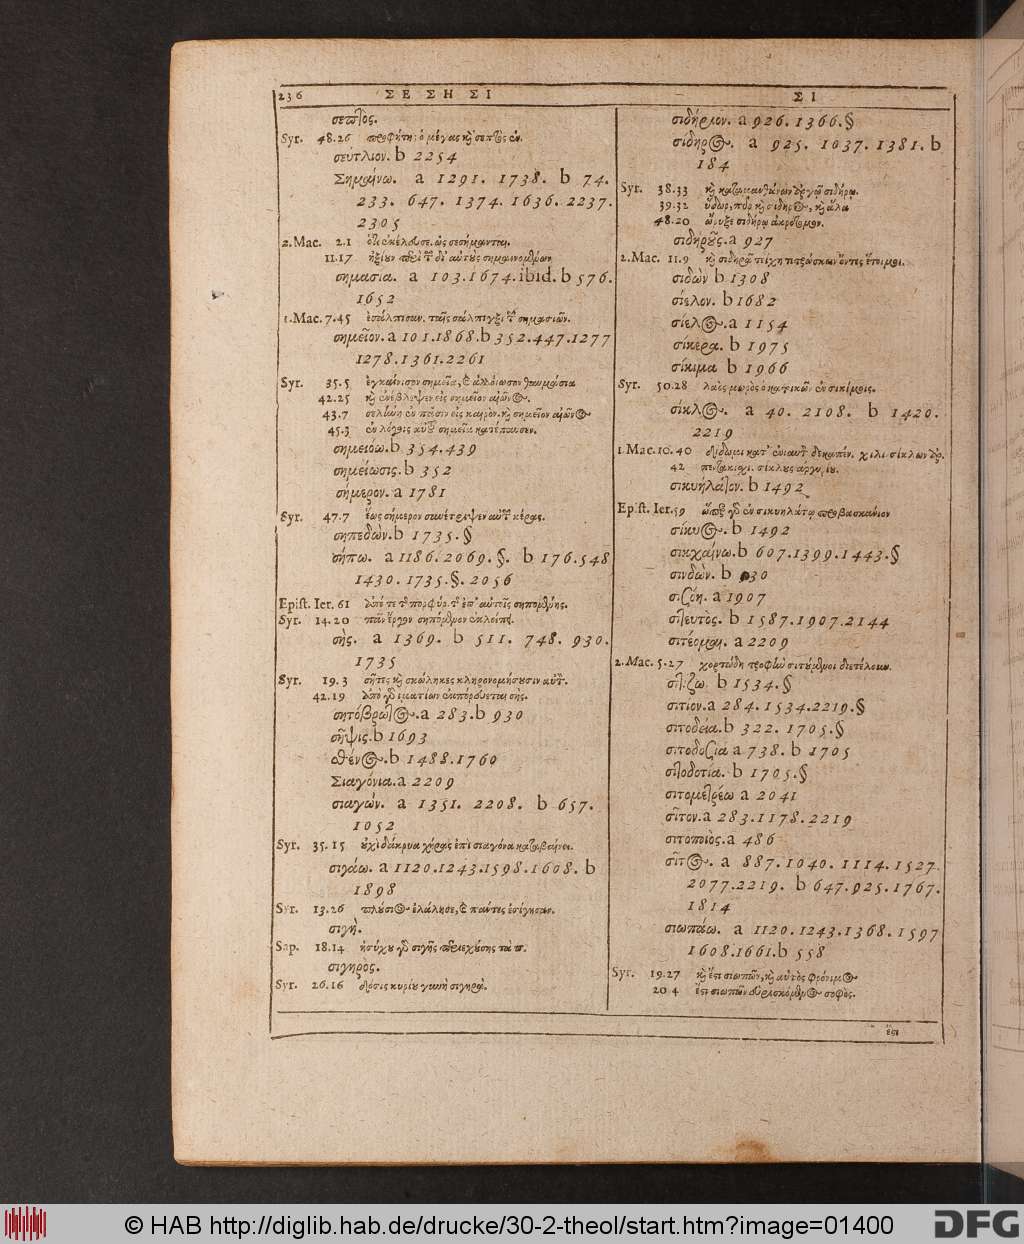 236 ΣΕ ΣΗ ΣΙ
σεπτὸς.
Syr. 48.26 προφήτης ὁ μέγας καὶ σεπτὸς ἐν.
σεύτλιον. b 2254
Σημαίνω. a 1291. 1738. b 74.
233. 647. 1374. 1636. 2237.
2305
2. Mac. 2.1 ὡς σεσήμανται.
11.17 σημαινομένων
σημασία. a 103. 1674. ibid. b 576.
1652
1. Mac. 7.45 ἐσάλπισαν. ταῖς σάλπιγξι τῶν σημασιῶν.
σημεῖον. a 101. 1868. b 352. 447. 1277
1278. 1361. 2261
Syr. 35.5 ἐγκαίνισον σημεῖα, καὶ ἀλλοίωσον θαυμάσια
42.25 καὶ ἐνέβλεψεν εἰς σημεῖον αἰῶνος.
43.7 σελήνη ἐν πᾶσιν εἰς καιρὸν. καὶ σημεῖον αἰῶνος
45.3 ἐν λόγοις αὐτοῦ σημεῖα κατέπαυσεν.
σημειόω. b 354. 439
σημείωσις. b 352
σήμερον. a 1781
Syr. 47.7 ἕως σήμερον συνέτριψεν αὐτῶν κέρας.
σηπεδὼν. b 1735. §
σήπω. a 1186. 2069. §. b 176. 548
1430. 1735. §. 2056
Epist. Ier. 61 ἀπό τε τῆς πορφύρ. τῆς ἐπ' αὐτοῖς σηπομένης.
Syr. 14.20 πᾶν ἔργον σηπόμενον ἐκλείπει.
σὴς. a 1369. b 511. 748. 930.
1735
Syr. 19.3 σῆτες καὶ σκώληκες κληρονομήσουσιν αὐτὸν.
42.19 ἀπὸ γὰρ ἱματίων ἐκπορεύεται σὴς.
σητόβρωτος. a 283. b 930
σῆψις. b 1693
σθένος. b 1488. 1760
Σιαγόνια. a 2209
σιαγὼν. a 1351. 2208. b 657.
1052
Syr. 35.15 οὐχὶ δάκρυα χήρας ἐπὶ σιαγόνα καταβαίνει.
σιγάω. a 1120. 1243. 1598. 1608. b
1898
Syr. 13.26 πλούσιος ἐλάλησε, καὶ πάντες ἐσίγησαν.
σιγὴ.
Sap. 18.14 ἡσύχου γὰρ σιγῆς περιεχούσης τὰ π.
σιγηρὸς.
Syr. 26.16 δόσις κυρίου γυνὴ σιγηρὰ.
ΣΙ
σιδήριον. a 926. 1366. §
σίδηρος. a 925. 1037. 1381. b
184
Syr. 38.33 σιδήρῳ.
39.32 ὕδωρ, πῦρ καὶ σίδηρος, καὶ ἅλα
48.20 ὤρυξε σιδήρῳ ἀκρότομον.
σιδηροῦς. a 927
2. Mac. 11.9 καὶ σιδηρᾶ τείχη τιτρώσκειν ὄντες ἕτοιμοι.
σιδὼν b 1308
σίελον. b 1682
σίελος. a 1154
σίκερα. b 1975
σίκιμα b 1966
Syr. 50.28 λαὸς μωρὸς ὁ κατοικῶν ἐν σικίμοις.
σίκλος. a 40. 2108. b 1420.
2219
1. Mac. 10.40 δίδωμι κατ' ἐνιαυτὸν δεκαπέν. χιλι. σίκλων ἀρ.
42 πεντακιςχι. σίκλους ἀργυρίου.
σικυήλατον. b 1492
Epist. Ier. 59 ὥσπερ γὰρ ἐν σικυηλάτῳ προβασκάνιον
σίκυος. b 1492
σικχαίνω. b 607. 1399. 1443. §
σινδὼν. b 30
σιζόη. a 1907
σιλευτὸς. b 1587. 1907. 2144
σιτέομαι. a 2209
2. Mac. 5.27 χορτώδη τροφὴν σιτούμενοι διετέλουν.
σιτίζω b 1534. §
σιτίον. a 284. 1534. 2219. §
σιτοδεία. b 322. 1705. §
σιτοδοσία a 738. b 1705
σιτοδοτία. b 1705. §
σιτομετρέω a 2041
σῖτον. a 283. 1178. 2219
σιτοποιὸς. a 486
σῖτος. a 887. 1040. 1114. 1527
2077. 2219. b 647. 925. 1767.
1814
σιωπάω. a 1120. 1243. 1368. 1597
1608. 1661. b 558
Syr. 19.27 καὶ ἔστι σιωπῶν, καὶ αὐτὸς φρόνιμος
20 4 ἔστι σιωπῶν εὑρισκόμενος σοφὸς.
ἔστι
© HAB http://diglib.hab.de/drucke/30-2-theol/start.htm?image=01400
DFG